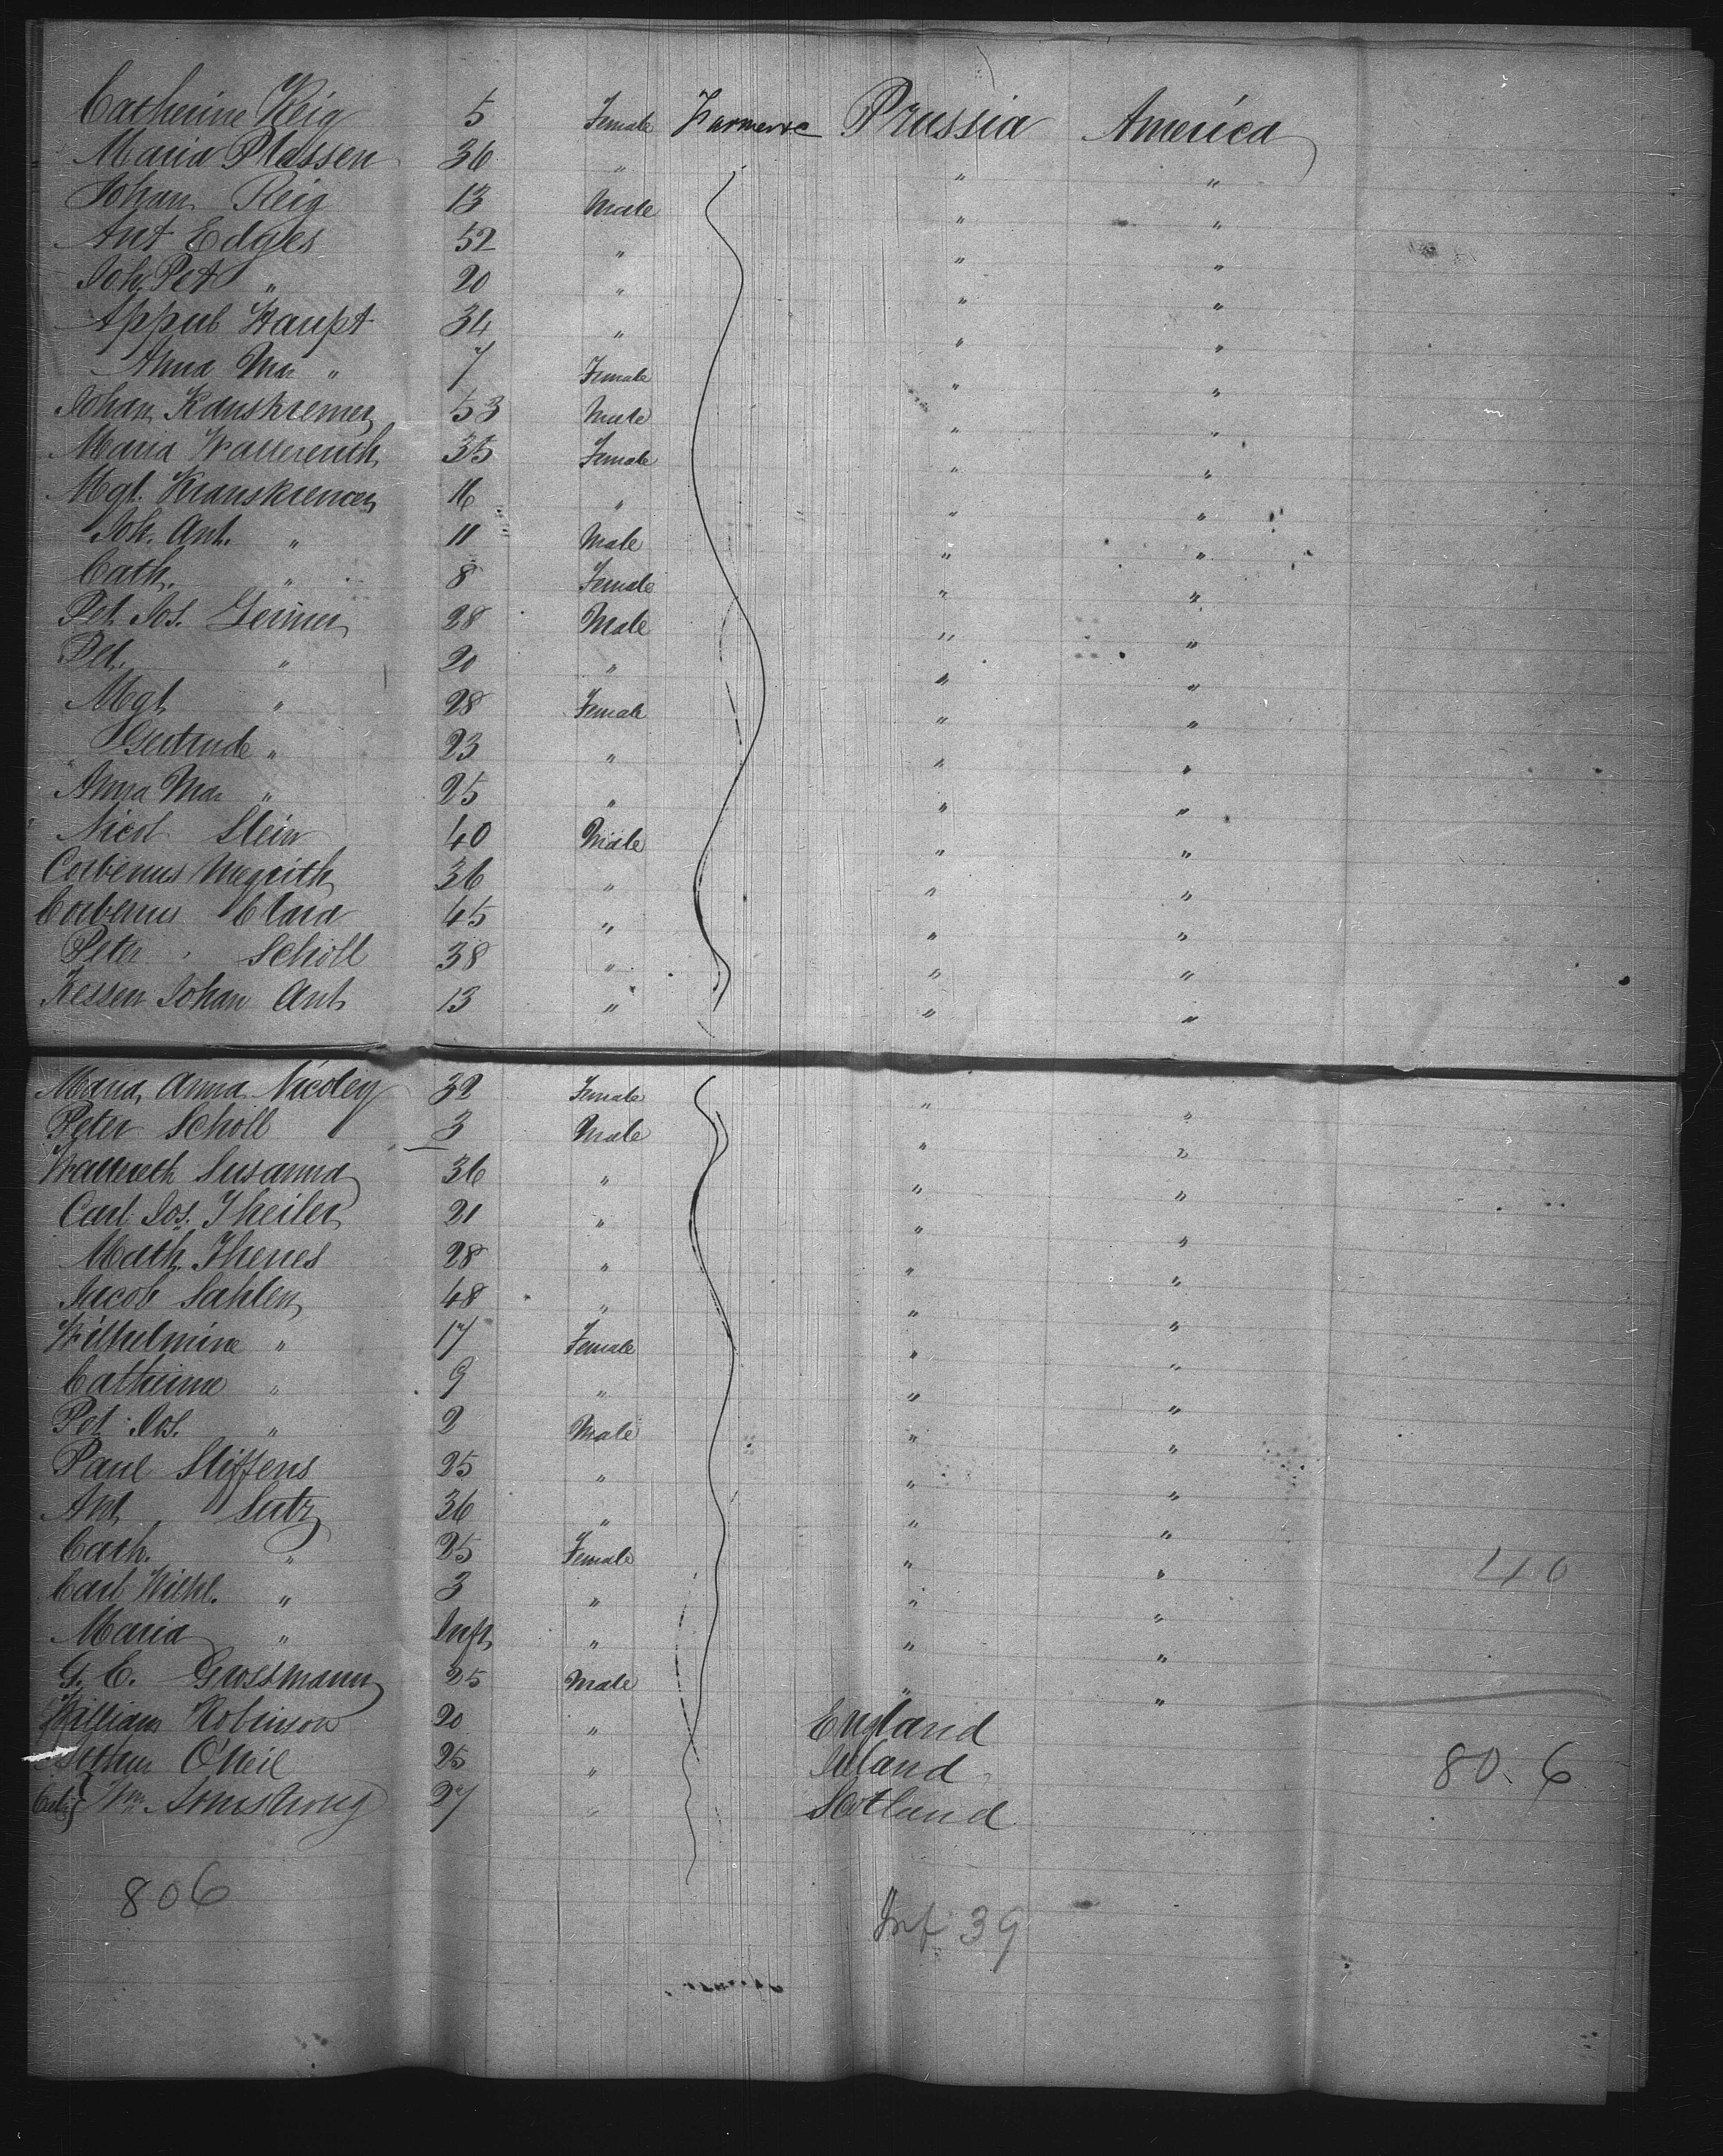 Catherine Reig 5 Female Farmers Prussia America
Maria Plassen 36 " " "
Johan Reig 13 Male " "
Ant Edges 52 " " "
Joh. Pet " 20 " " "
Appub Haupt 34 " " "
Anna Mar " 7 Female " "
Johan Kranskremer 53 Male " "
Maria Wallerenth 35 Female " "
Mgt. Kranskremer 16 " " "
Joh. Ant. " 11 Male " "
Cath. " 8 Female " "
Pet. Jos. Germer 28 Male " "
Pet. " 20 " " "
Mgt. " 28 Female " "
Gertrude " 23 " " "
Anna Mar " 25 " " "
Nicol Stein 40 Male " "
Corbenus 36 " " "
Corbenus Clara 45 " " "
Peter Scholl 38 " " "
Kessen Johan Ant 13 " " "
Maria Anna Nicoley 32 Female " "
Peter Scholl 3 Male " "
Susanna 36 " " "
Carl Jos. Theiler 21 " " "
Math. Thenes 28 " " "
Jacob Sahlen 48 " " "
Wilhelmine " 17 Female " "
Catherine " 9 " " "
Pet. Jos. " 2 Male " "
Paul Stiffens 25 " " "
Ant Lutz 36 " " "
Cath. " 25 Female " "
Carl Wilhl. " 3 " " "
Maria " Inft " " "
G. C. Grossmann 25 Male " "
William Robinson 20 " England
Arthur O'Neil 25 " Ireland
Wm. Armstrong 27 " Scotland
46
80.6
806
Inf 39